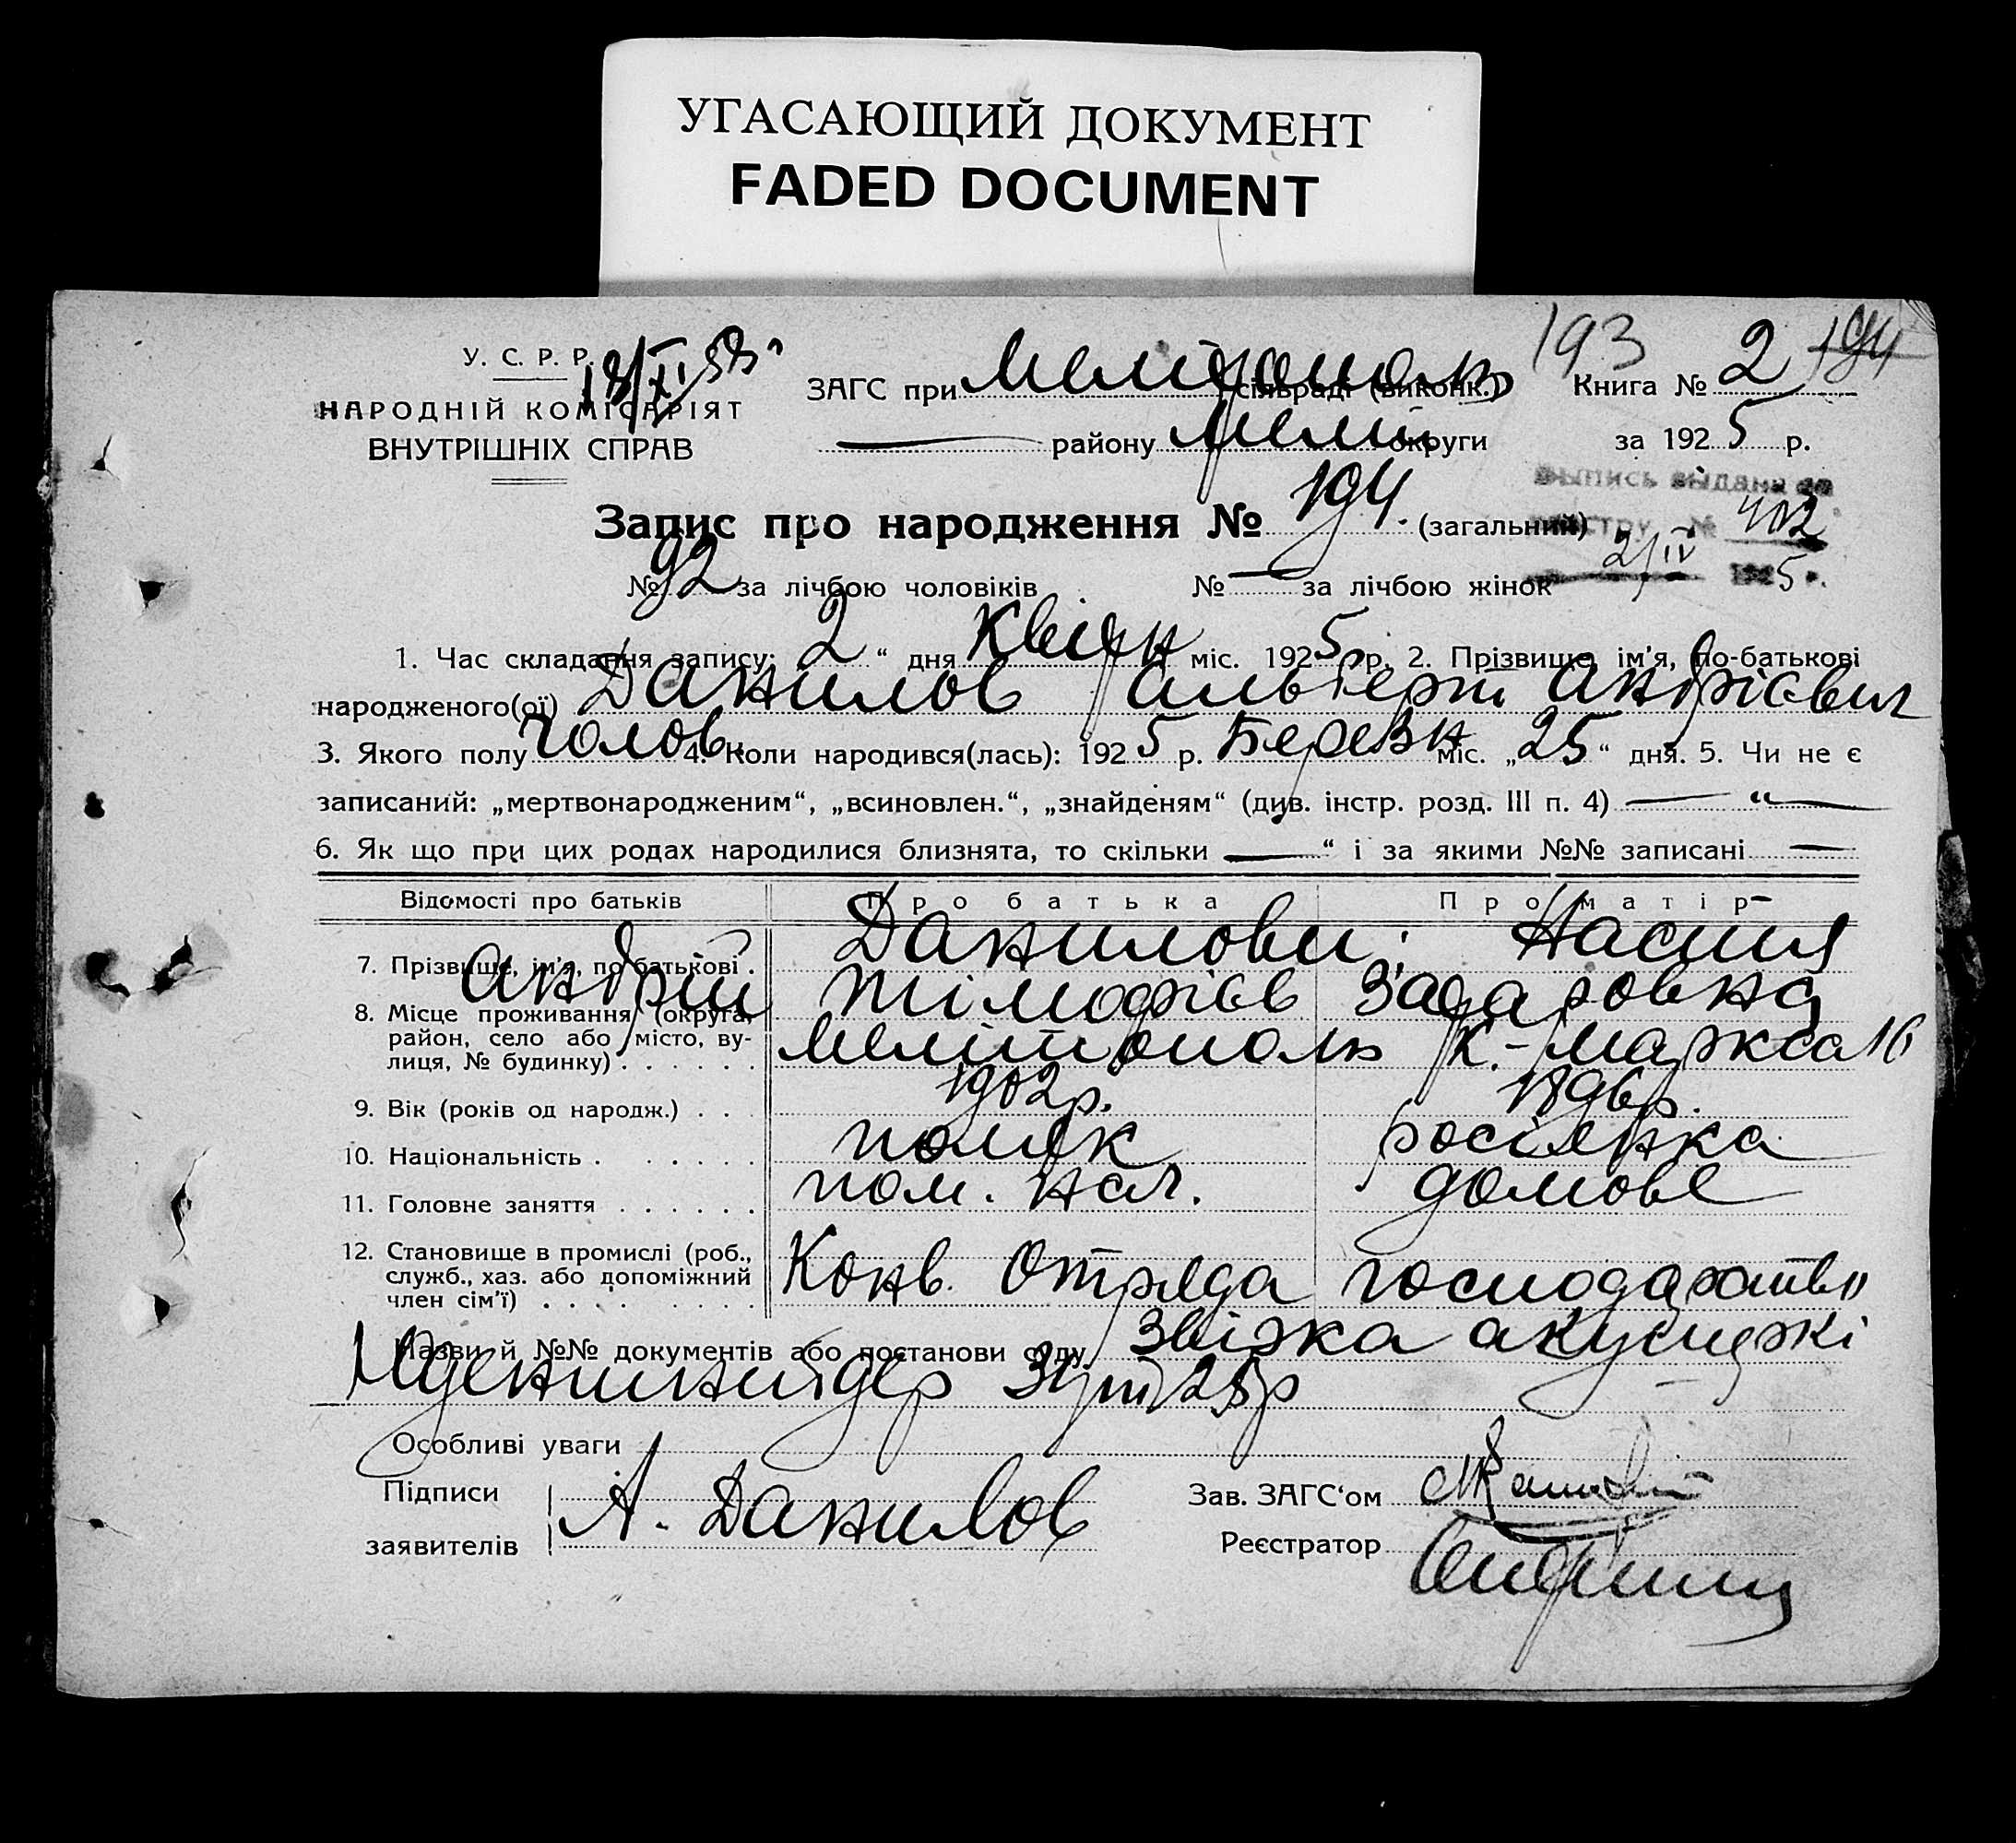 УГАСАЮЩИЙ ДОКУМЕНТ
FADED DOCUMENT
193 2 194
У. С. Р. Р. 18/XI 53г
НАРОДНІЙ КОМІСАРІЯТ
ВНУТРІШНІХ СПРАВ
ЗАГС при Мелітополь сільраді (виконк.) Книга № 2
— району Меліт округи за 1925 р.
Выпись выдана по
реестру № 402
2/IV 1925 г.
Запис про народження № 194. (загальний)
№ 92 за лічбою чоловіків № — за лічбою жінок
1. Час складання запису: 2 “ дня Квітн міс. 1925 р. 2. Прізвище, ім’я, по-батькові
народженого(ої) Данилов Альберт Андрієвич
3. Якого полу чолов. 4. Коли народився(лась): 1925 р. Березн міс. „25“ дня. 5. Чи не є
записаний: „мертвонародженим“, „всиновлен.“, „знайденям“ (див. інстр. розд. III п. 4) — “ —
6. Як що при цих родах народилися близнята, то скільки — “ і за якими №№ записані —
Відомості про батьків Про батька Про матір
7. Прізвище, ім’я, по батькові . Данилови: Настя
Андрій Тімофієв Захаровна
8. Місце проживання (округа, район, село або місто, ву-
лиця, № будинку) . . . . . . Мелітополь К.-Маркса 16
9. Вік (років од народж.) . . . 1902р. 1896р.
10. Національність . . . . . . поляк росіянка
11. Головне заняття . . . . . . пом. нач. домове
12. Становище в промислі (роб.,
служб., хаз. або допоміжний Конв. Отряда господарство
член сім’ї) . . . . . . . . .
Назви й №№ документів або постанови суду. Звізка акушерки
31/III 25р
Особливі уваги
Підписи
заявителів А. Данилов
Зав. ЗАГС‘ом
Реєстратор